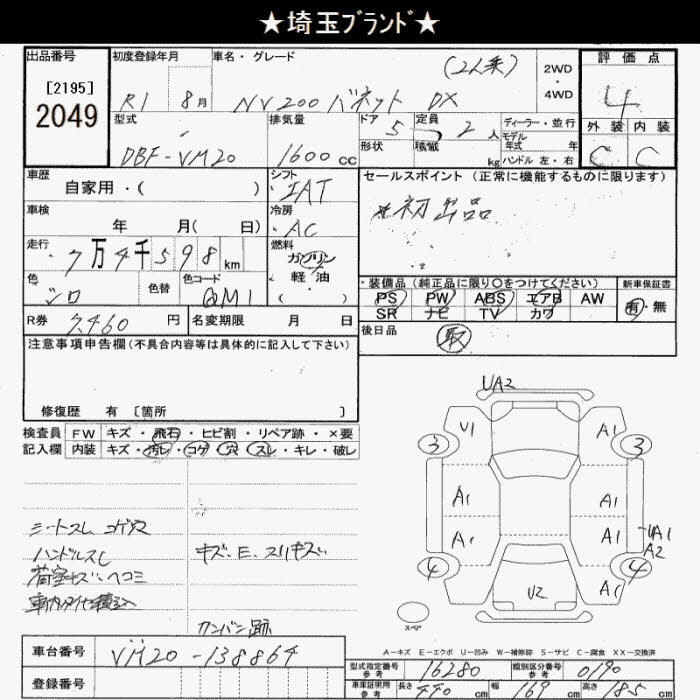 ★埼玉ブランド★
出品番号
[2195]
2049
初度登録年月
R1 8月
車名・グレード
NV200 バネット DX
(2人乗)
2WD
・
4WD
評価点
4
外装 内装
C C
型式
DBF-VM20
排気量
1600cc
ドア
5
定員
2人
形状
積載
kg
ディーラー・並行
モデル年式 年
ハンドル 左・右
車歴
自家用・( )
シフト
IAT
冷房
AC
セールスポイント (正常に機能するものに限ります)
初出品
車検
年 月( 日)
走行
7万4千598km
燃料
ガソリン
軽・油
( )
色
シロ
色替
色コード
QM1
・装備品 (純正品に限り○をつけてください)
PS PW ABS エアB AW
SR ナビ TV カワ
新車保証書
有・無
R券
7460円
名変期限 月 日
後日品
取
注意事項申告欄 (不具合内容等は具体的に記入して下さい)
修復歴 有 〔箇所 〕
検査員
記入欄
FW キズ・飛石・ヒビ割・リペア跡・×要
内装 キズ・汚レ・コゲ・穴・スレ・キレ・破レ
シートスレ コゲ穴
ハンドルスレ
荷室キズ・ヘコミ
車内タイヤ積込
キズ・E・スリキズ
カンバン跡
UA2
U1 A1
3 3
A1 A1
A1 A1
UA1
A2
4 4
U2 A1
スペア
A-キズ E-エクボ U-凹み W-補修跡 S-サビ C-腐食 XX-交換済
車台番号
VM20-138864
登録番号
型式指定番号
参考
16280
類別区分番号
参考
0190
車庫証明用
参考
長さ 440cm
幅 169cm
高さ 185cm